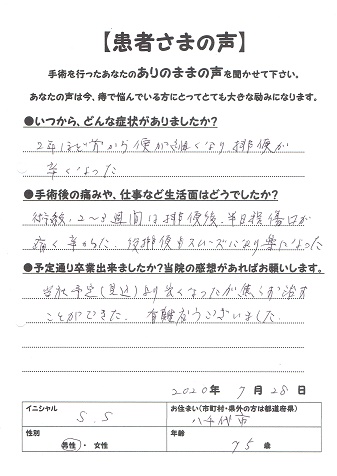 【患者さまの声】
手術を行ったあなたのありのままの声を聞かせて下さい。
あなたの声は今、痔で悩んでいる方にとってとても大きな励みになります。
●いつから、どんな症状がありましたか?
2年ほど前から便が細くなり排便が
辛くなった
●手術後の痛みや、仕事など生活面はどうでしたか?
術後、2〜3週間は排便後、半日程傷口が
痛く辛かった。後排便もスムーズになり楽になった
●予定通り卒業出来ましたか?当院の感想があればお願いします。
当初予定(見込)より長くなったが焦らず治す
ことができた. 有難度うございました.
2020年 7月28日
イニシャル
お住まい(市町村・県外の方は都道府県)
S.S
八千代市
性別
年齢
男性・女性
75歳